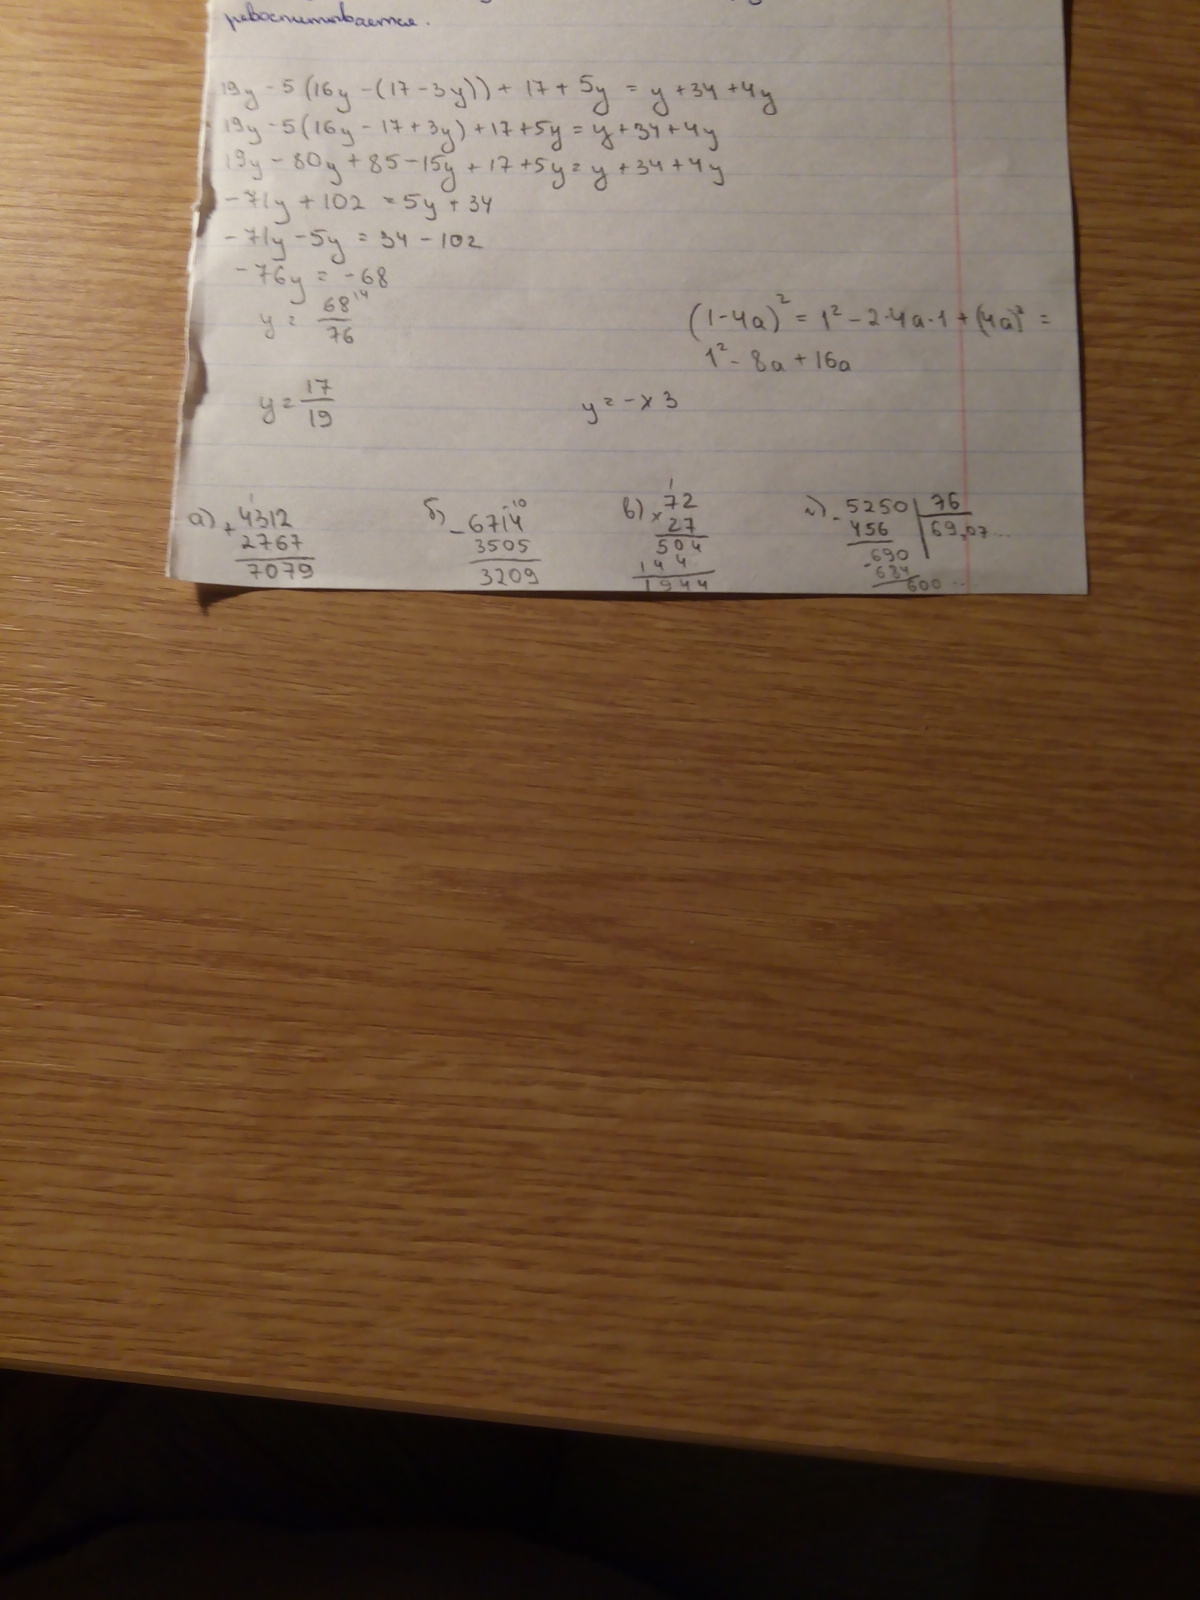 ревоспитывается.
19y - 5(16y - (17 - 3y)) + 17 + 5y = y + 34 + 4y
19y - 5(16y - 17 + 3y) + 17 + 5y = y + 34 + 4y
19y - 80y + 85 - 15y + 17 + 5y = y + 34 + 4y
-71y + 102 = 5y + 34
-71y - 5y = 34 - 102
-76y = -68
y = 68/76
(1-4a)² = 1² - 2·4a·1 + (4a)² =
1² - 8a + 16a
y = 17/19
y = -x 3
а) + 4312
2767
7079
б) - 6714
3505
3209
в) x 72
27
504
144
1944
г) - 5250 | 76
456 69,07...
-690
684
600...